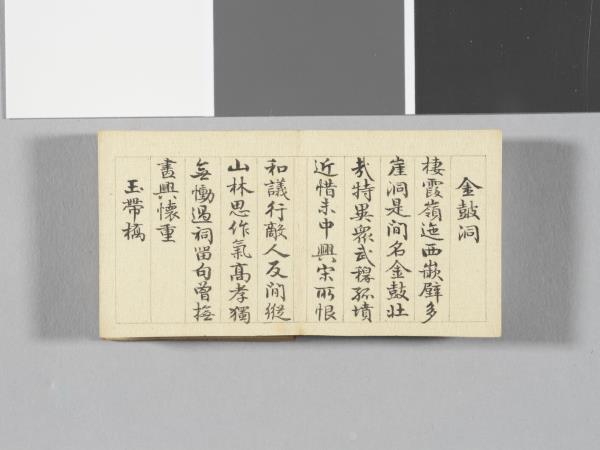 金鼓洞
棲霞嶺迤西嵌壁多
崖洞是間名金鼓壯
哉特異衆武穆孤墳
近惜未中興宋所恨
和議行敵人反間縱
山林思作氣高孝獨
無慟過祠留句曾撫
書興懷重
玉帶橋